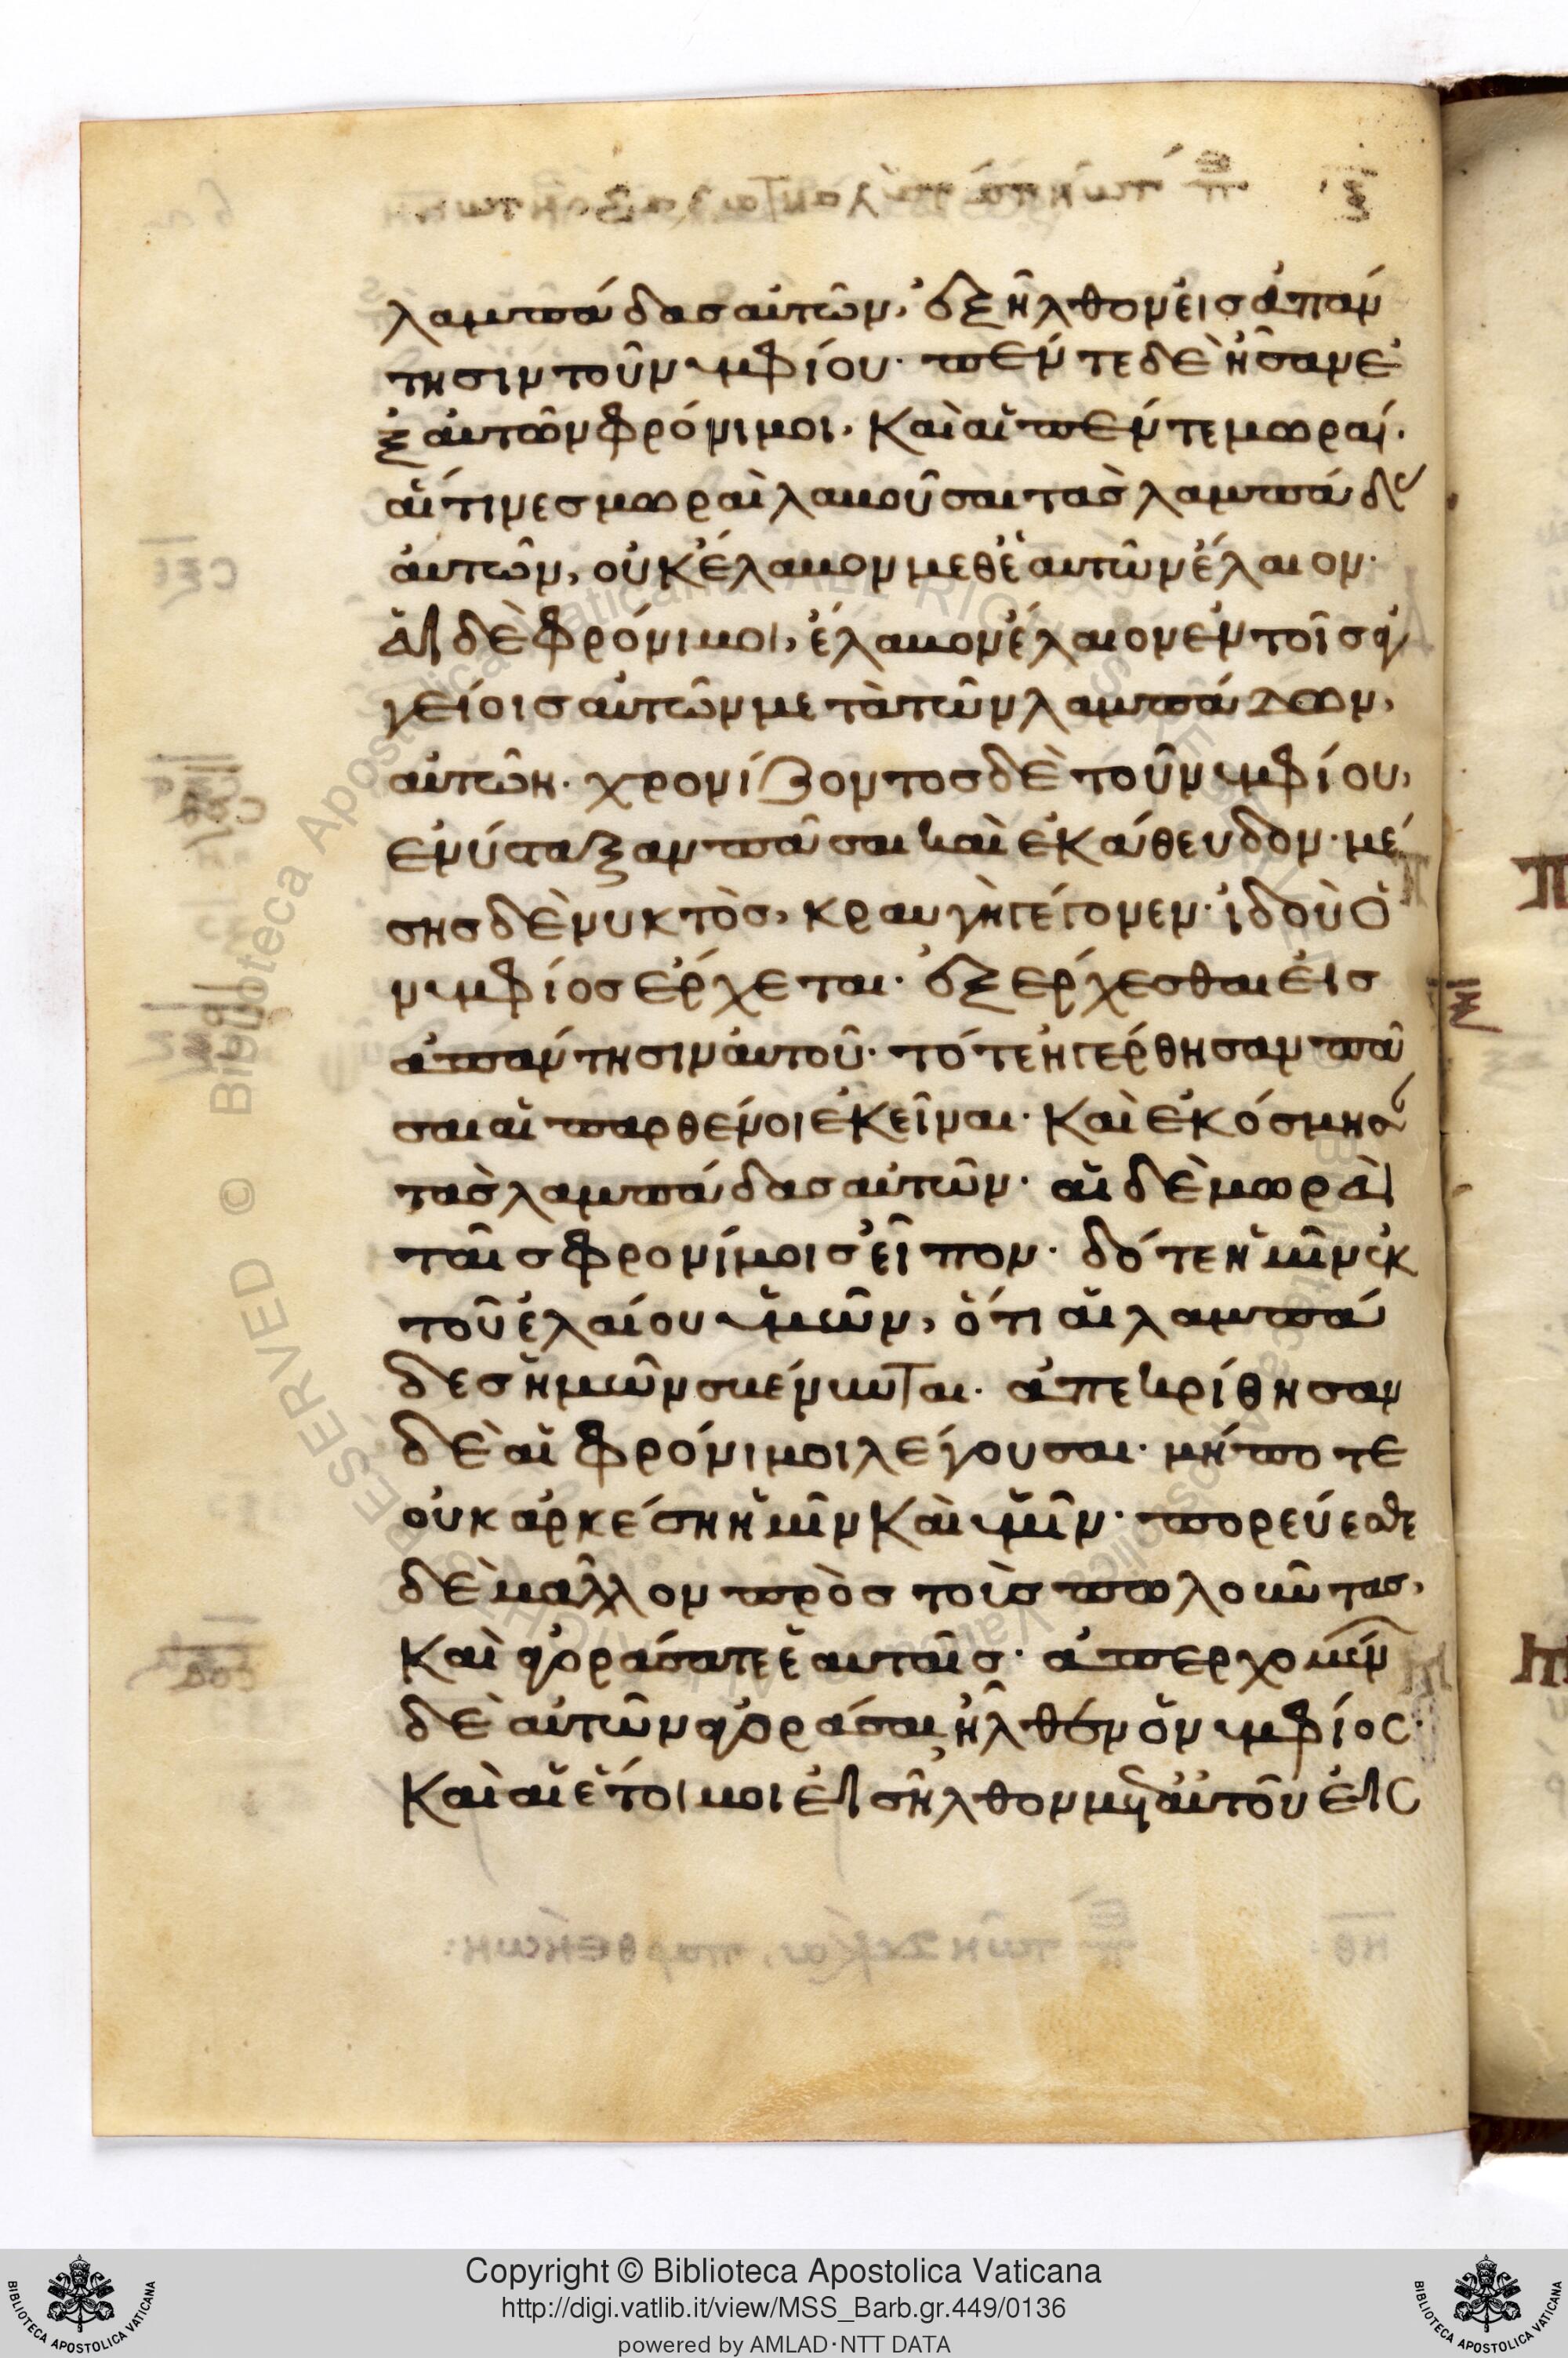 λαμπάδας αὐτῶν, ἐξῆλθον εἰς ἀπάν
τησιν τοῦ νυμφίου· πέντε δὲ ἦσαν ἐ
ξ αὐτῶν φρόνιμοι, καὶ αἱ πέντε μωραί.
αἵτινες μωραὶ λαβοῦσαι τὰς λαμπάδ
αὐτῶν, οὐκ ἔλαβον μεθ ἑαυτῶν ἔλαιον·
αἱ δὲ φρόνιμοι, ἔλαβον ἔλαιον ἐν τοῖς ἀγ
γείοις αὐτῶν μετὰ τῶν λαμπάδων,
αὐτῶν. χρονίζοντος δὲ τοῦ νυμφίου,
ἐνύσταξαν πᾶσαι καὶ ἐκάθευδον· μέ
σης δὲ νυκτὸς, κραυγὴ γέγονεν· ἰδοὺ ὁ
νυμφίος ἔρχεται· ἐξέρχεσθαι εἰς
ἀπάντησιν αὐτοῦ· τότε ἠγέρθησαν πᾶ
σαι αἱ παρθένοι ἐκεῖναι· καὶ ἐκόσμησ
τὰς λαμπάδας αὐτῶν· αἱ δὲ μωραὶ
ταῖς φρονίμοις εἶπον· δότε ἡμῖν ἐκ
τοῦ ἐλαίου ὑμῶν, ὅτι αἱ λαμπά
δες ἡμῶν σβένυνται· ἀπεκρίθησαν
δὲ αἱ φρόνιμοι λέγουσαι· μήποτε
οὐκ ἀρκέσῃ ἡμῖν καὶ ὑμῖν· πορεύεσθε
δὲ μᾶλλον πρὸς τοὺς πωλοῦντας,
καὶ ἀγοράσατε ἑαυταῖς· ἀπερχομέν
δὲ αὐτῶν ἀγοράσαι ἦλθεν ὁ νυμφίος·
καὶ αἱ ἕτοιμοι εἰσῆλθον μετ αὐτοῦ εἰς
Copyright © Biblioteca Apostolica Vaticana
http://digi.vatlib.it/view/MSS_Barb.gr.449/0136
powered by AMLAD·NTT DATA
BIBLIOTECA APOSTOLICA VATICANA
BIBLIOTECA APOSTOLICA VATICANA